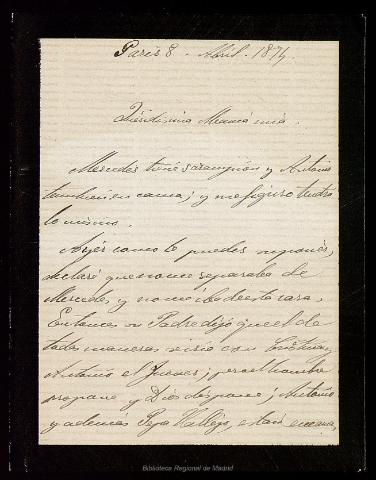 Paris 8 - Abril - 1874.
Queridisima Mamá mia.
Mercedes tiene sarampión y Antonio
tambien en cama; y me figuro tendrá
lo mismo.
Ayer como te puedes suponer,
declaré que no me separaba de
Mercedes, y no me iba de esta casa.
Entonces su Padre dijo que el de
todas maneras iria con Cristina y
Antonio el Jueves; pero el hombre
propone y Dios dispone; Antonio
y además Pepa Vallejo, estan en cama,
Biblioteca Regional de Madrid